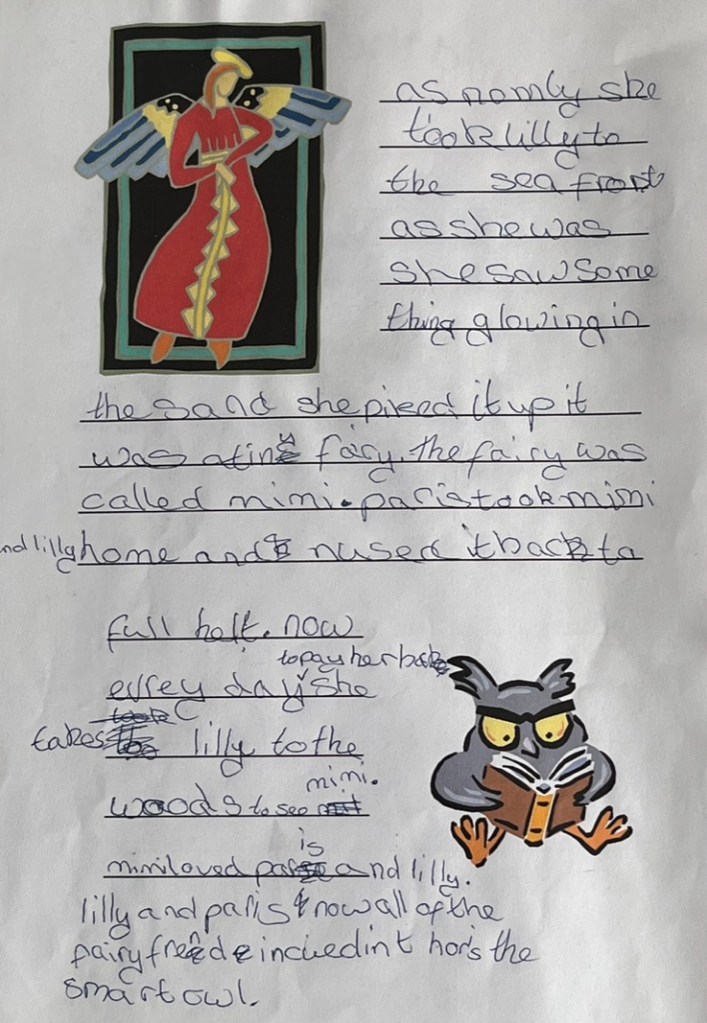 as nomly she
took lilly to
the sea front
as she was
she saw some
thing glowing in
the sand she piked it up it
was a tiny fairy. the fairy was
called mimi. paris took mimi
nd lilly home and nused it back to
full helt. now
to pay her back
evrey day she
takes lilly to the
mimi.
woods to see
is
mimi loved paris and lilly.
lilly and paris know all of the
fairy freinds incuedint horis the
smart owl.